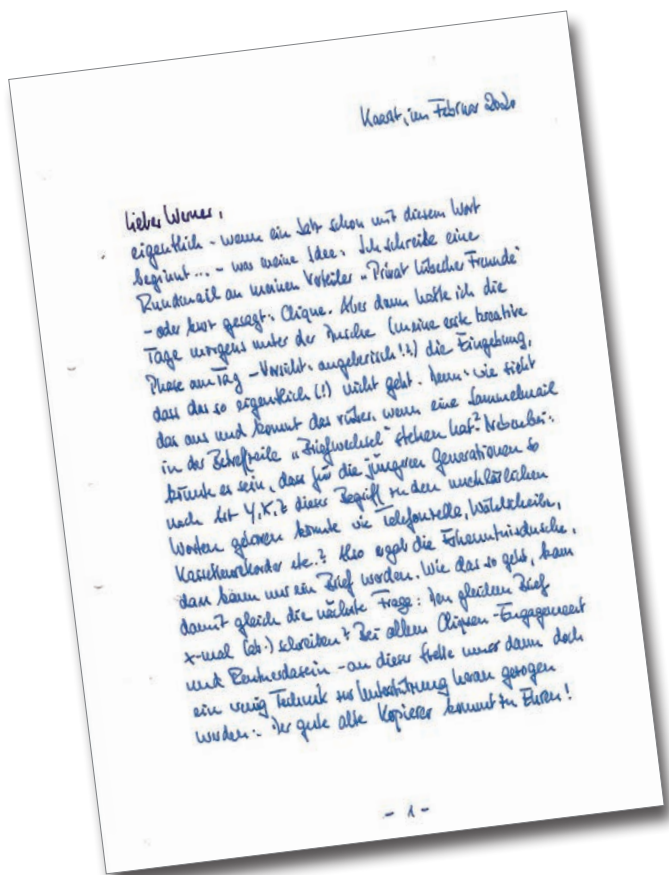 Kaarst, im Februar 2020
Lieber Werner,
eigentlich - wenn ein Satz schon mit diesem Wort
beginnt... - war meine Idee: Ich schreibe eine
Rundmail an meinen Verteiler „Privat Lübecher Freunde"
- oder kurz gesagt: Clique. Aber dann hatte ich die
Tage morgens unter der Dusche (meine erste kreative
Phase am Tag - Vorsicht: angeberisch!?) die Eingebung,
dass das so eigentlich (!) nicht geht. Denn: wie sieht
das aus und kommt das rüber, wenn eine Sammelmail
in der Betreffzeile „Briefwechsel" stehen hat? Nebenbei:
könnte es sein, dass für die jüngeren Generationen so
nach Art Y, X, Z dieser Begriff zu den unerklärlichen
Worten gehören könnte wie Telefonzelle, Wählscheibe,
Kassettenrekorder etc.? Also ergab die Erkenntnisdusche,
dass kann nur ein Brief werden. Wie das so geht, kam
damit gleich die nächste Frage: den gleichen Brief
x-mal (ab.) schreiben? Bei allem Cliquen-Engagement
und Rentnerdasein - an dieser Stelle muss dann doch
ein wenig Technik zur Unterstützung heran gezogen
werden: Der gute alte Kopierer kommt zu Ehren!
- 1 -